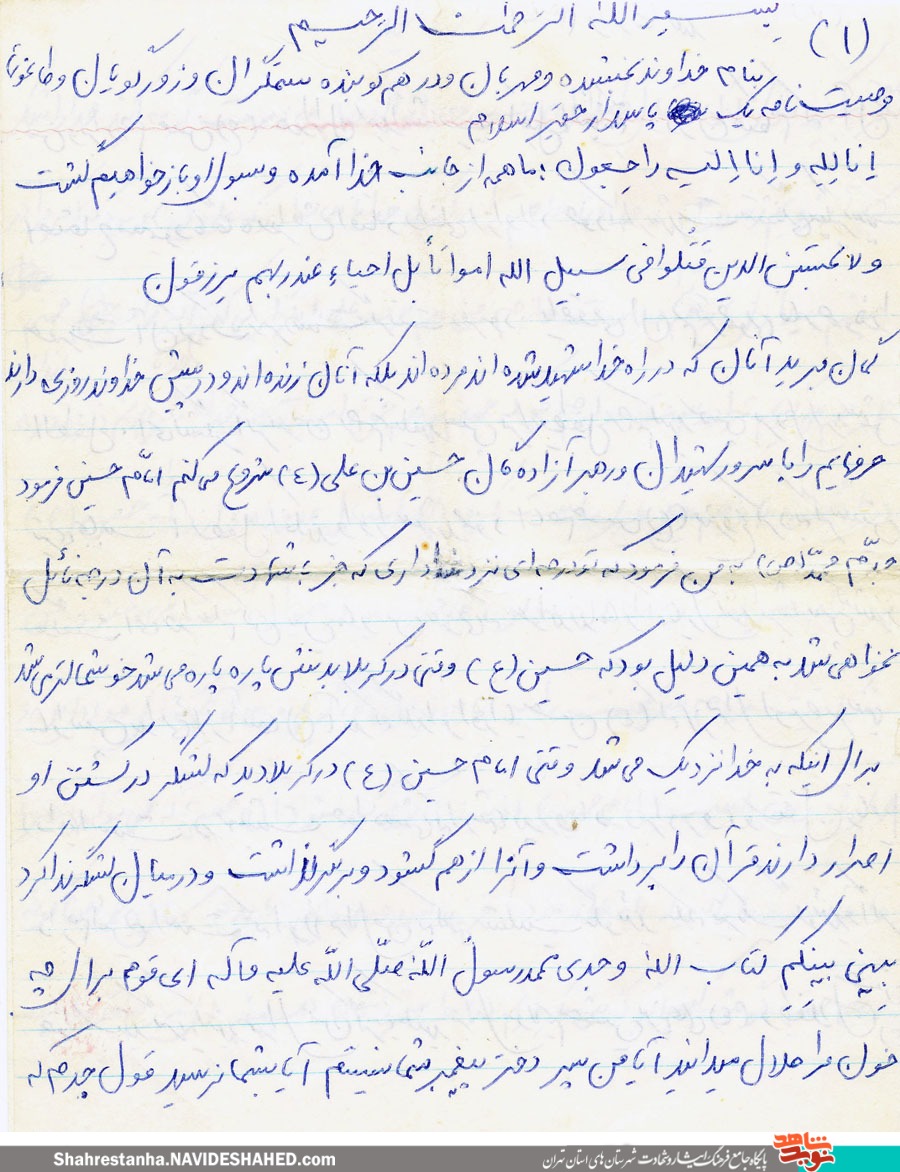 بسم الله الرحمن الرحیم
(۱)
بنام خداوند بخشنده و مهربان و در هم کوبنده ستمگران و زورگویان و طاغوتها
وصیت نامه یک پاسدار حقیر اسلام
انا لله و انا الیه راجعون : ما همه از جانب خدا آمده و بسوی او باز خواهیم گشت
ولا تحسبن الذین قتلوا فی سبیل الله امواتاً بل احیاء عند ربهم یرزقون
گمان مبرید آنان که در راه خدا شهید شده اند مرده اند بلکه آنان زنده اند و در پیش خداوند روزی دارند
حرفهایم را با سرور شهیدان و رهبر آزادگان حسین بن علی (ع) شروع می کنم امام حسین فرمود
جدّم محمّد (ص) به من فرمود که تو درجه ای نزد خدا داری که جز به شهادت به آن درجه نائل
نخواهی شد به همین دلیل بود که حسین (ع) وقتی در کربلا بدنش پاره پاره می شد خوشحالتر می شد
برای اینکه به خدا نزدیک می شد وقتی امام حسین (ع) در کربلا دید که لشگر در کشتن او
اصرار دارند قرآن را برداشت و آنرا از هم گشود و بر سر گذاشت و در میان لشگر ندا کرد
بینی بینکم کتاب الله وجدی محمد رسول اللّه صلّی اللّه علیه و آله ای قوم برای چه
خون مرا حلال میدانید آیا من پسر دختر پیغمبر شما نیستم آیا بشما نرسید قول جدم که
Shahrestanha.NAVIDESHAHED.com
پایگاه جامع فرهنگ ایثار و شهادت شهرستان های استان تهران
نوید شاهد